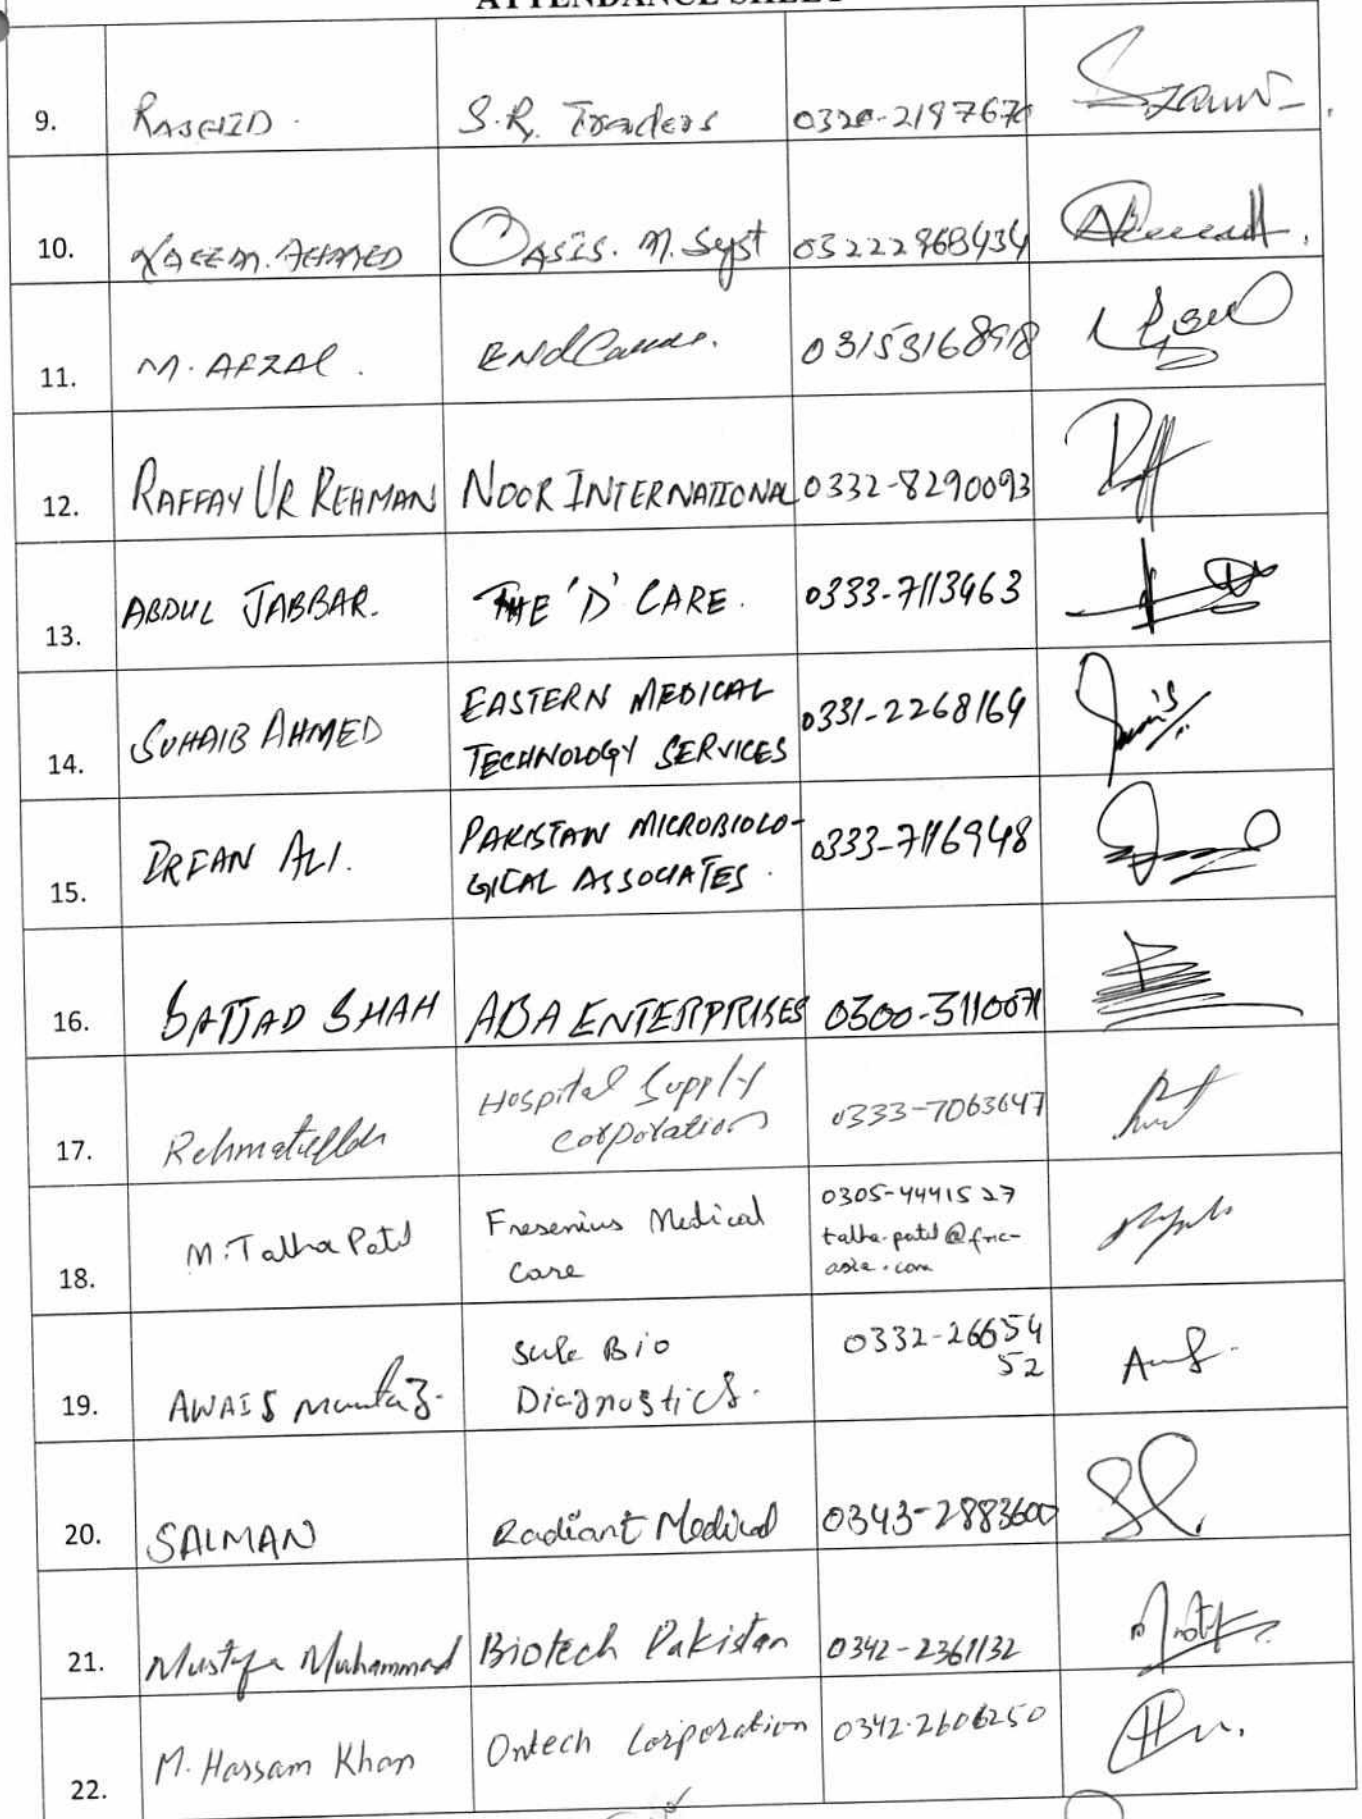 ATTENDANCE SHEET
9. RASHID. S.R. Traders 0320-2197670
10. NAEEM. AHMED OASIS. M. Syst 03222968434
11. M. AFZAL. 03153168918
12. RAFFAY UR REHMAN NOOR INTERNATIONAL 0332-8290093
13. ABDUL JABBAR. THE 'D' CARE. 0333-7113463
14. SUHAIB AHMED EASTERN MEDICAL 0331-2268164
TECHNOLOGY SERVICES
15. IRFAN ALI. PAKISTAN MICROBIOLO- 0333-7116948
GICAL ASSOCIATES.
16. SAJJAD SHAH ABA ENTERPRISES 0300-3110071
17. Rehmatullah Hospital Supply 0333-7063647
Corporation
18. M. Talha Patel Fresenius Medical 0305-4441527
Care talha.patel@fmc-
asia.com
19. AWAIS Mumtaz. Bio 0332-26654
Diagnostics. 52
20. SALMAN Radiant Medical 0343-2883600
21. Mustafa Muhammad Biotech Pakistan 0342-2361132
22. M. Hassam Khan Ontech Corporation 0342-2606250